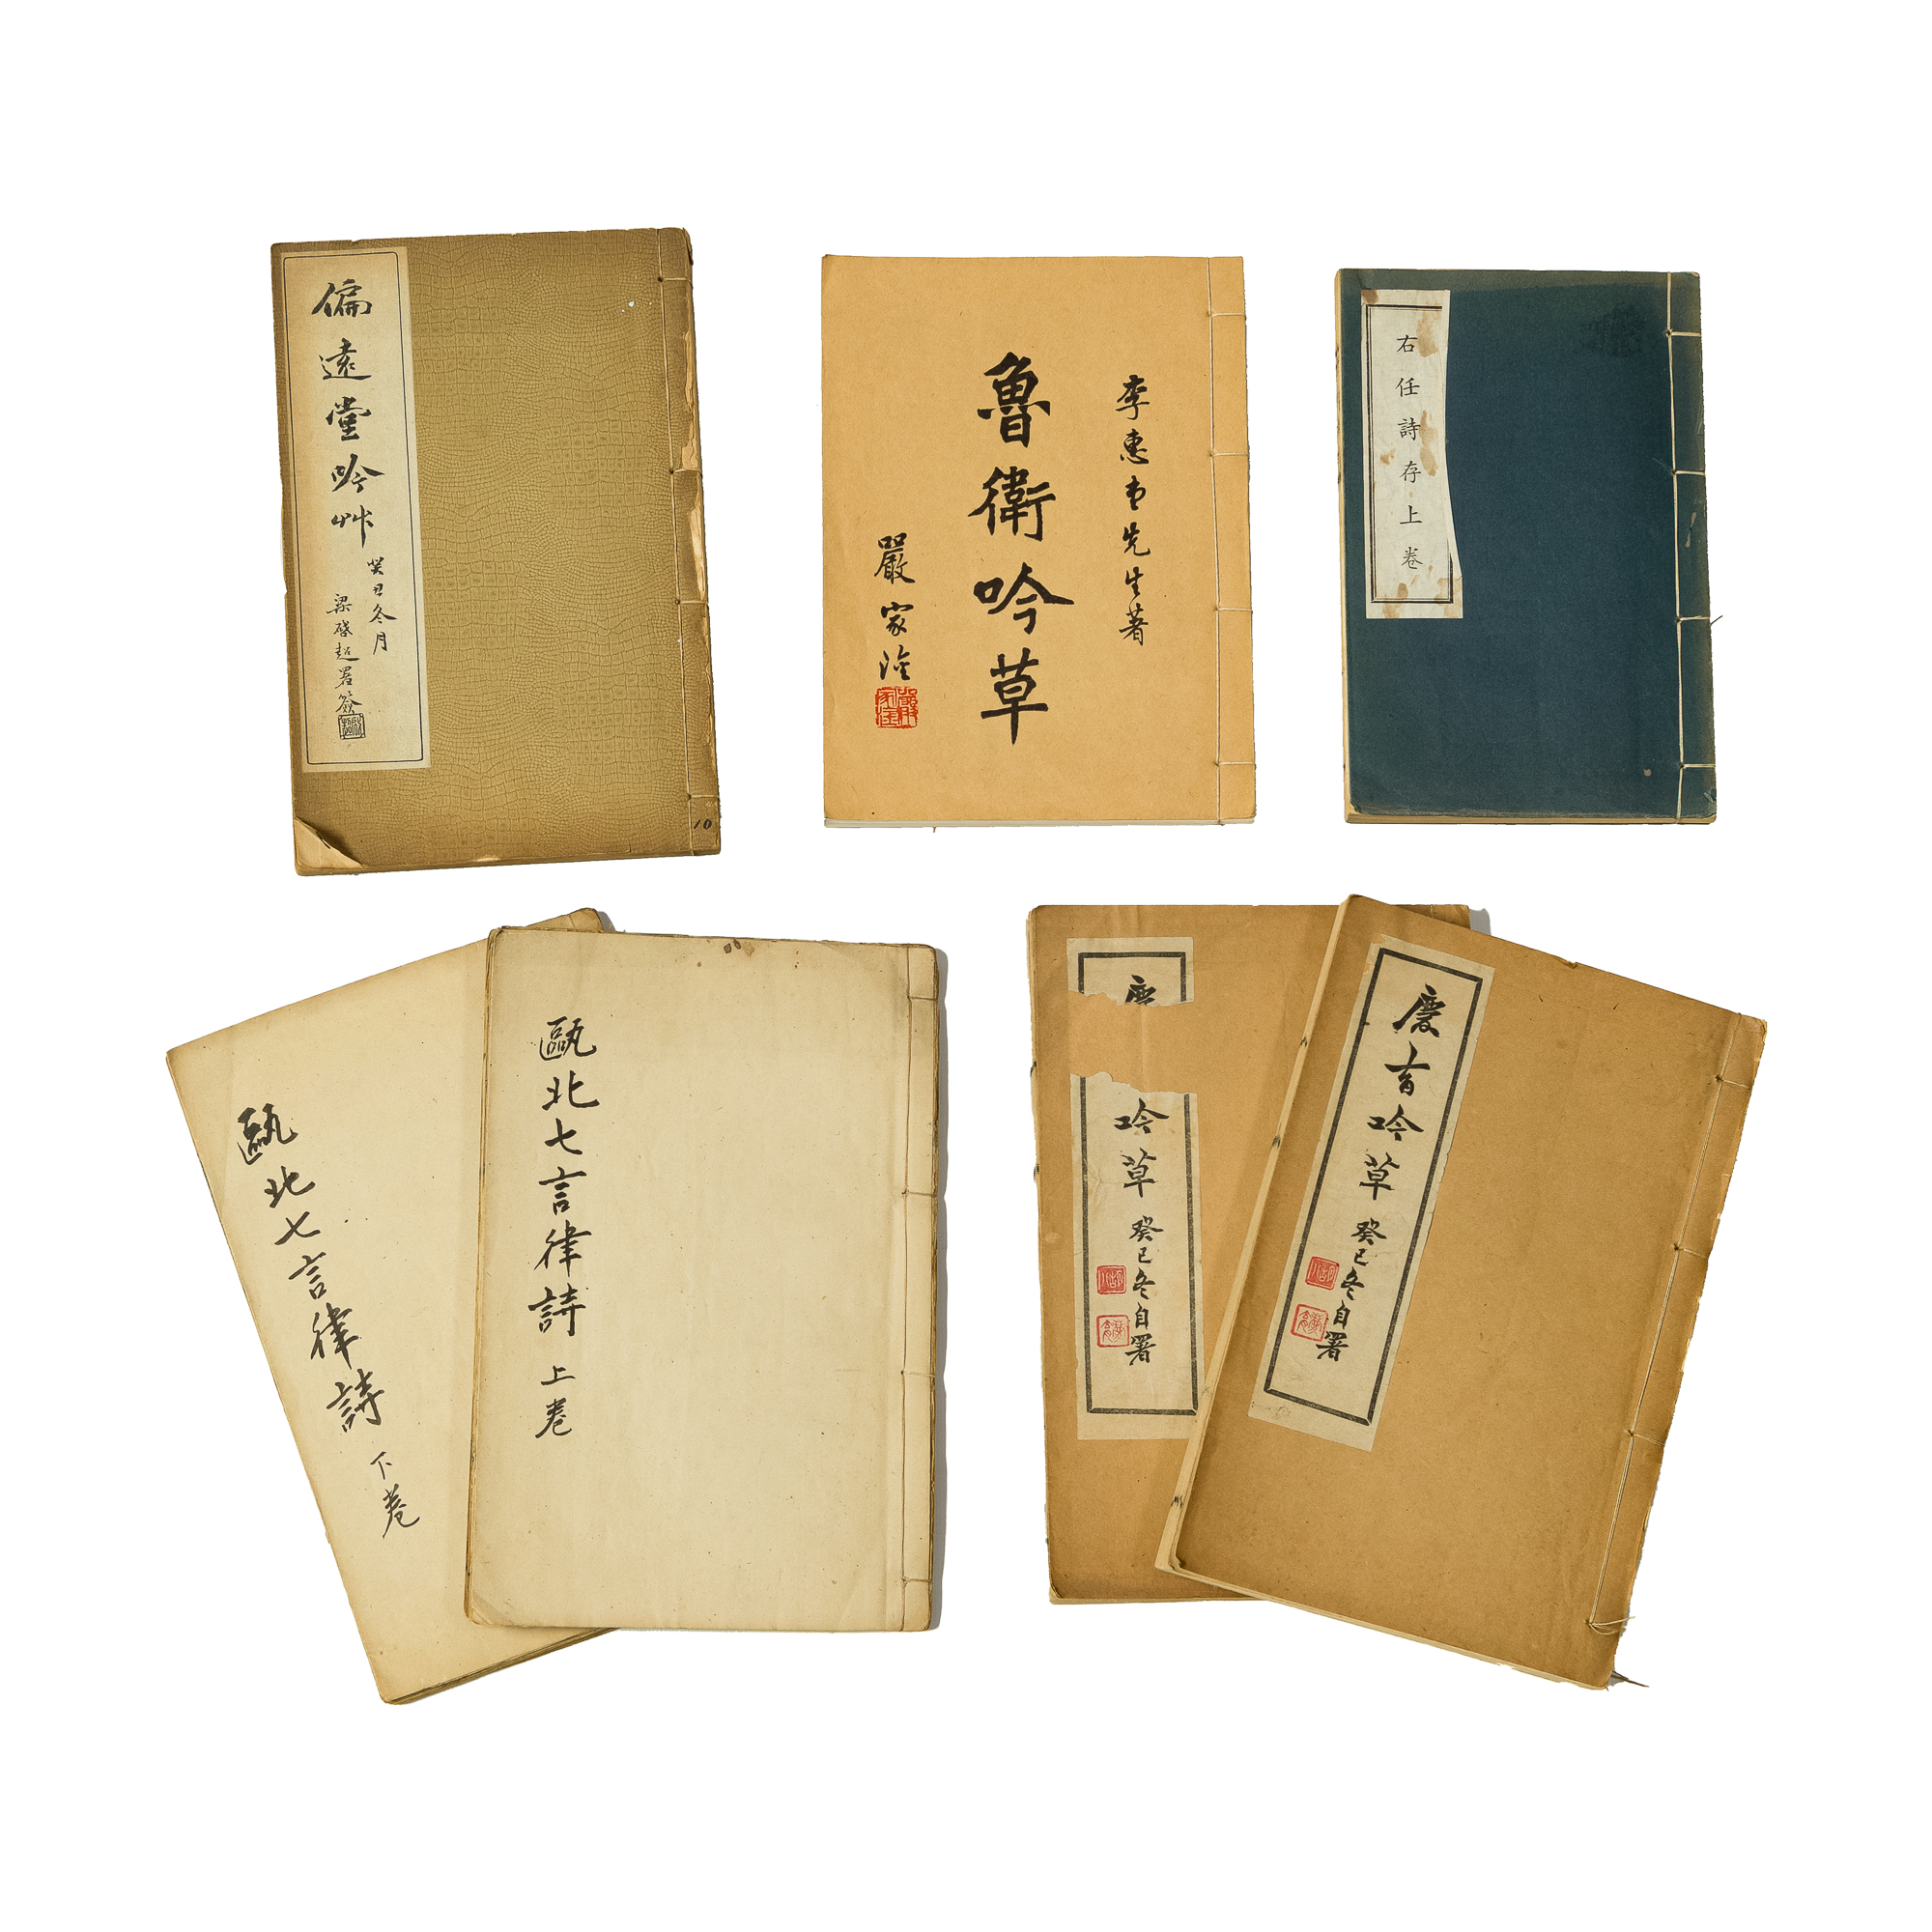 偏遠堂吟艸
癸丑冬月
梁啓超署簽
10
李惠堂先生著
魯衛吟草
嚴家淦
右任詩存上卷
甌北七言律詩 下卷
甌北七言律詩 上卷
慶
吟草
癸巳冬自署
慶育吟草
癸巳冬自署